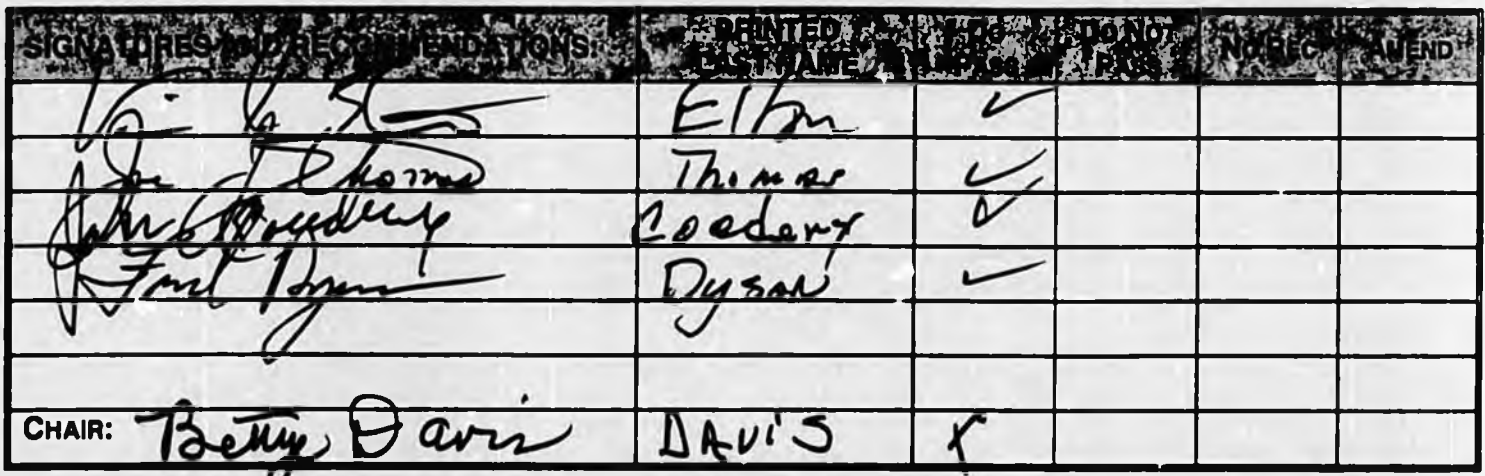 SIGNATURES AND RECOMMENDATIONS: PRINTED LAST NAME DO PASS DO NOT PASS NO REC AMEND
Elton ✓
Joe J Thomas Thomas ✓
John Cowdery Cowdery ✓
Fred Dyson Dyson ✓
CHAIR: Bettye Davis DAVIS X